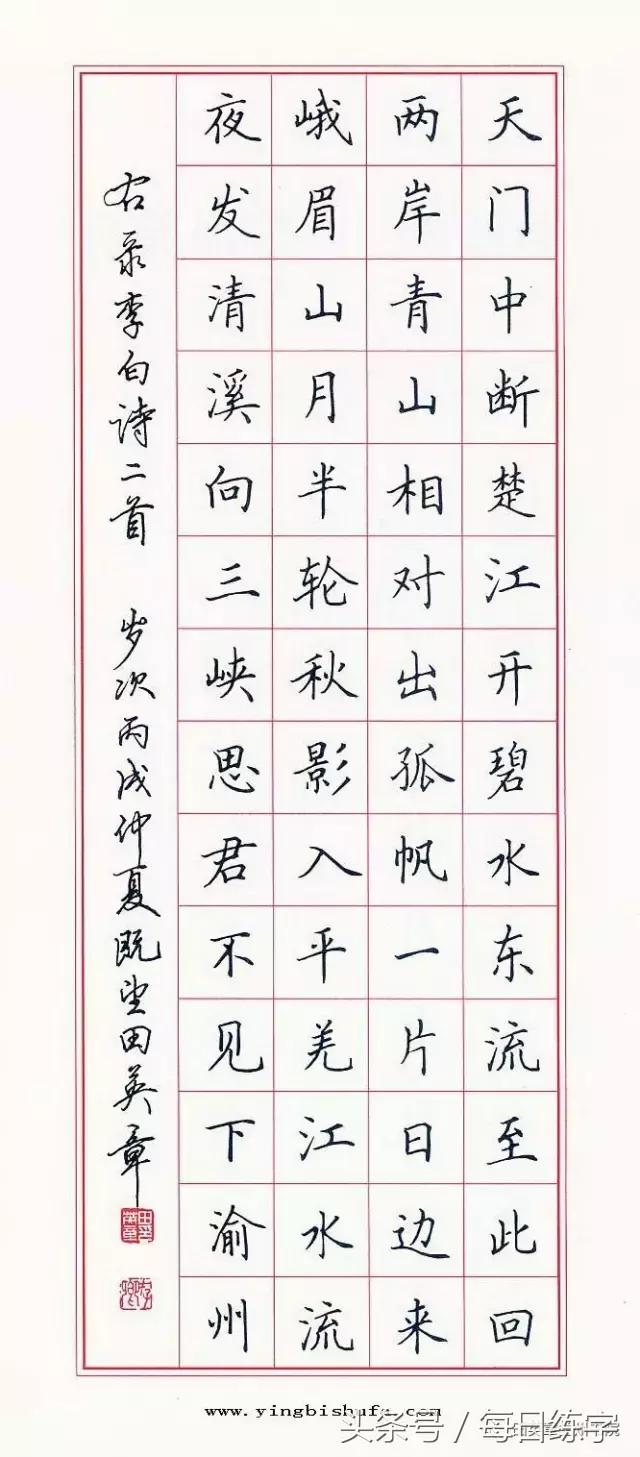 天门中断楚江开碧水东流至此回
两岸青山相对出孤帆一片日边来
峨眉山月半轮秋影入平羌江水流
夜发清溪向三峡思君不见下渝州
右录李白诗二首 岁次丙戌仲夏既望田英章
www.yingbishufa.com
头条号／每日练字